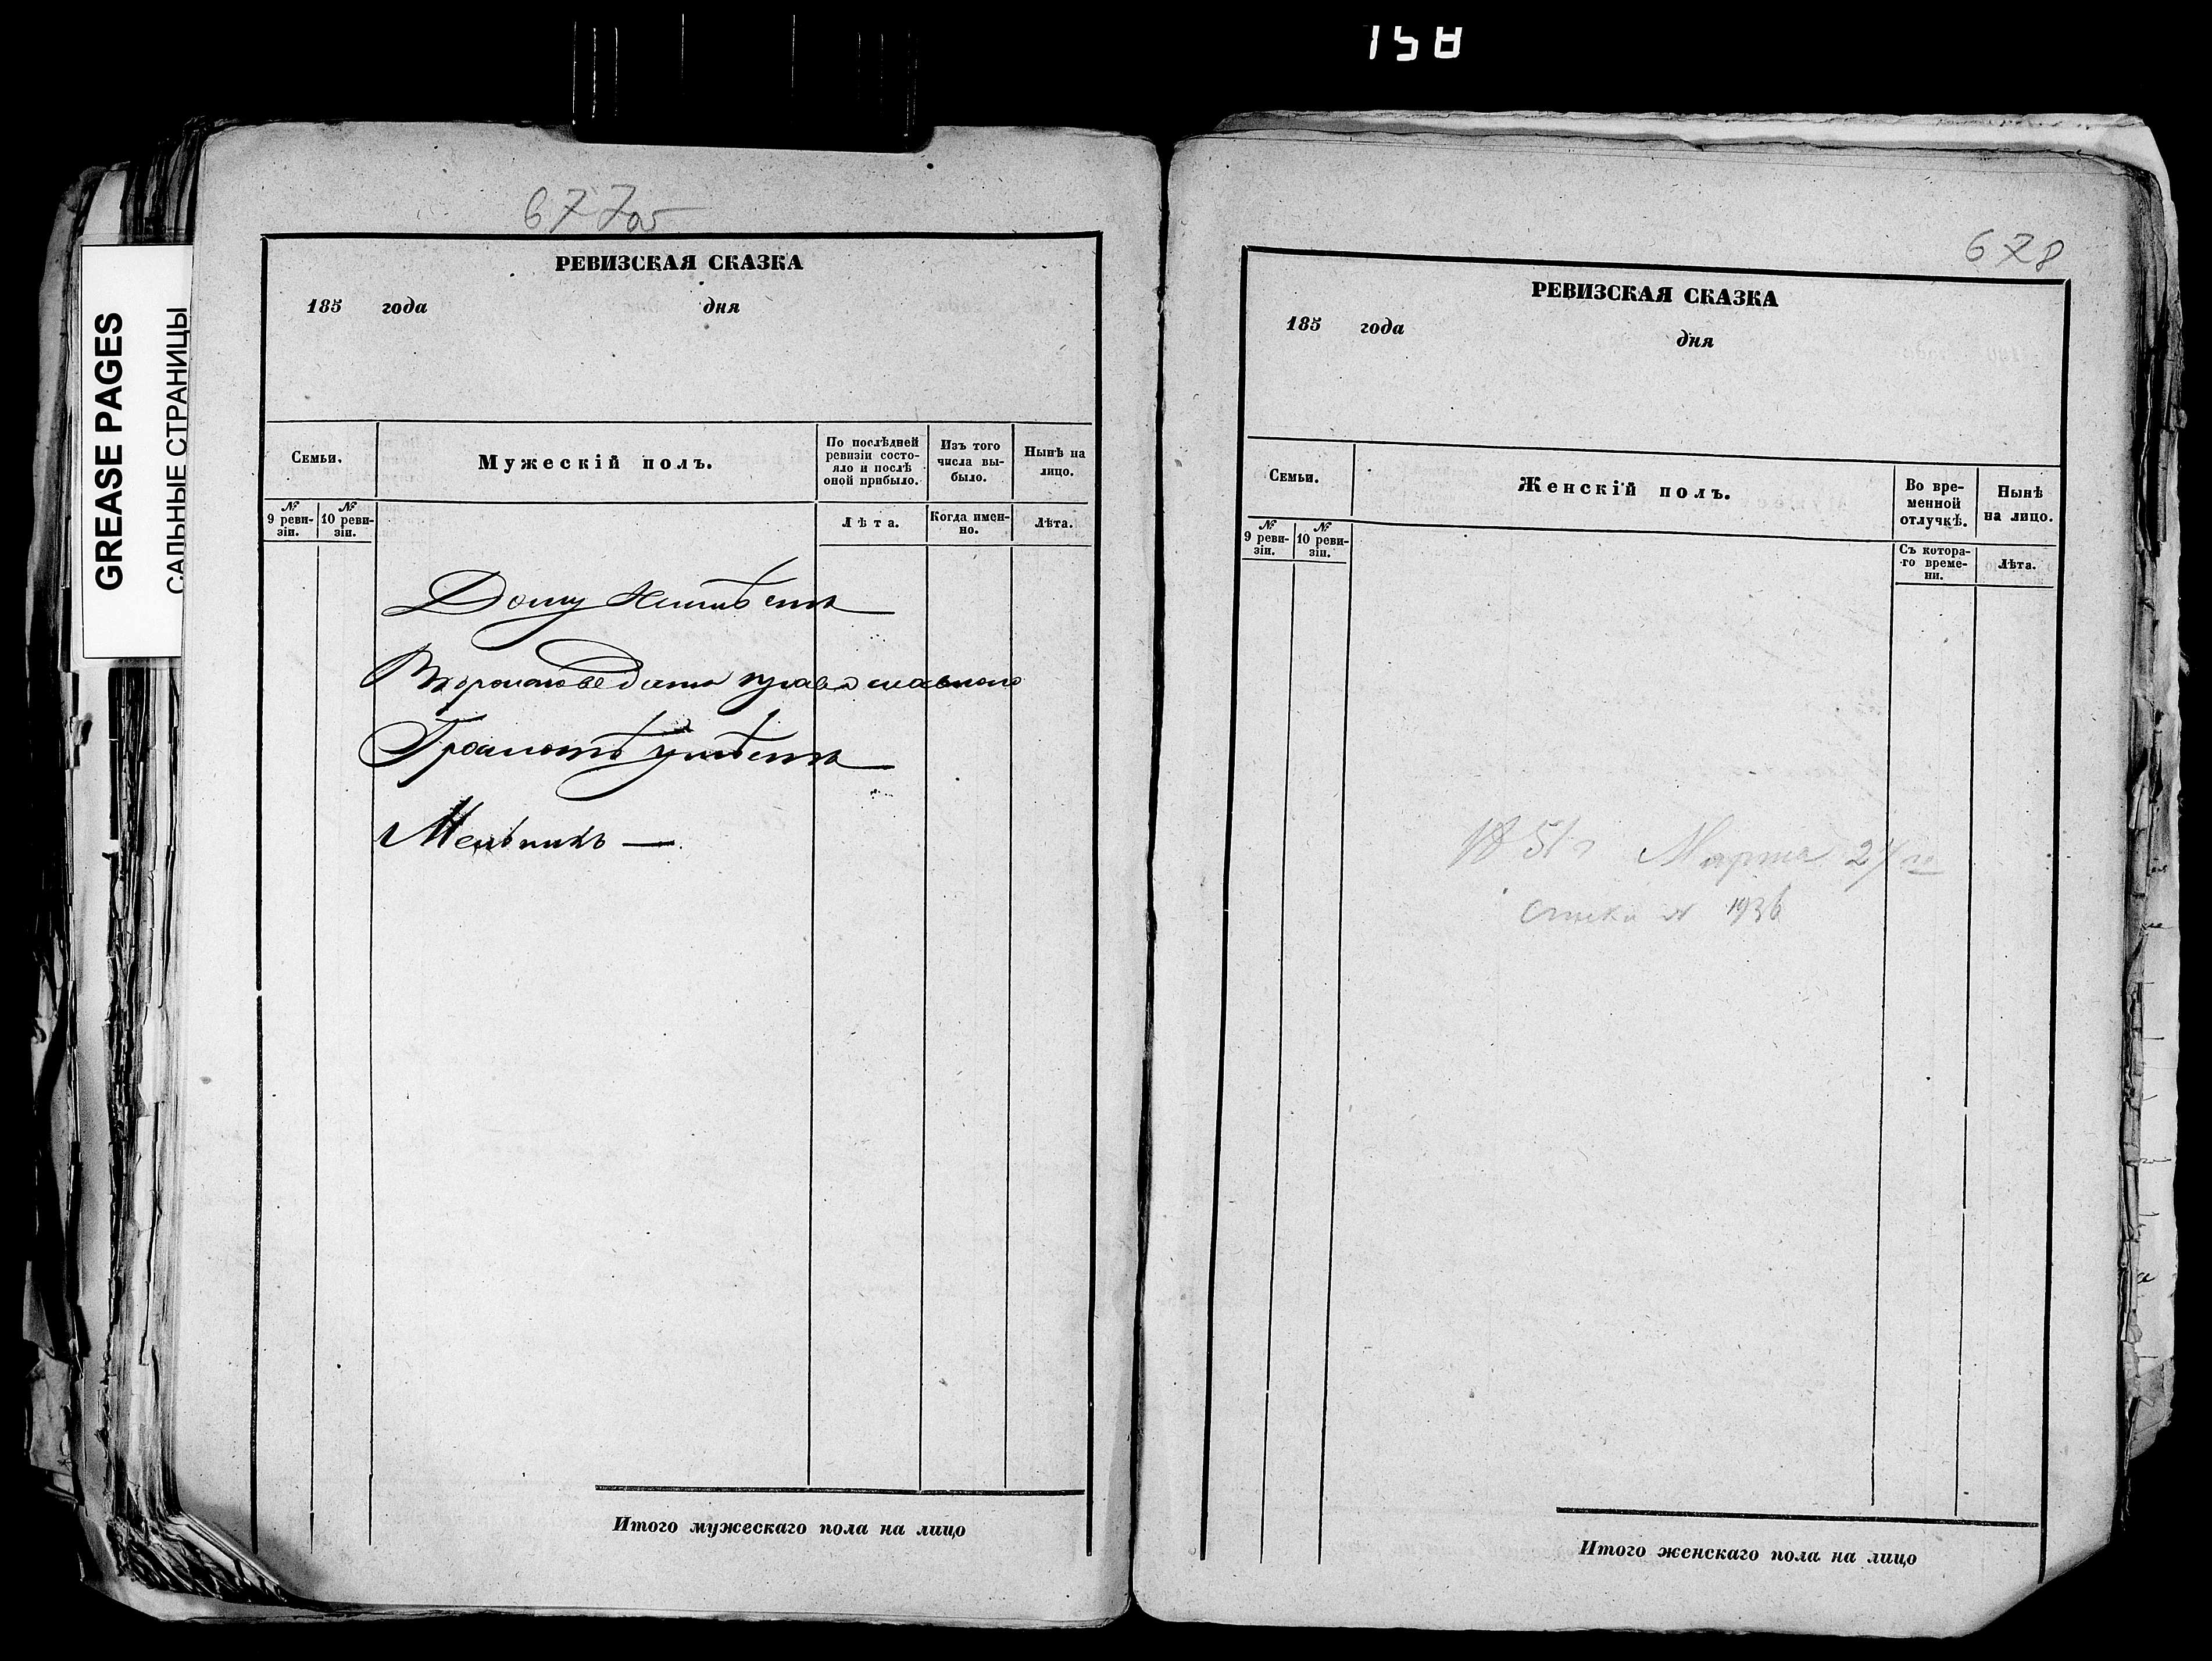 158
GREASE PAGES
САЛЬНЫЕ СТРАНИЦЫ
677об
РЕВИЗСКАЯ СКАЗКА
185 года дня
Семьи.
Мужескій полъ.
По послѣдней ревизіи состояло и послѣ оной прибыло.
Изъ того числа выбыло.
Нынѣ на лицо.
№ 9 ревизіи.
№ 10 ревизіи.
Лѣта.
Когда именно.
Лѣта.
Дому неимѣетъ
Вѣроисповеданія православнаго
Грамотѣ умѣетъ
Мельникъ —
Итого мужескаго пола на лицо
678
РЕВИЗСКАЯ СКАЗКА
185 года
дня
Семьи.
Женскій полъ.
Во временной отлучкѣ.
Нынѣ на лицо.
№ 9 ревизіи.
№ 10 ревизіи.
Съ котораго времени.
Лѣта.
1851 г Марта 27 го
№ 1936
Итого женскаго пола на лицо